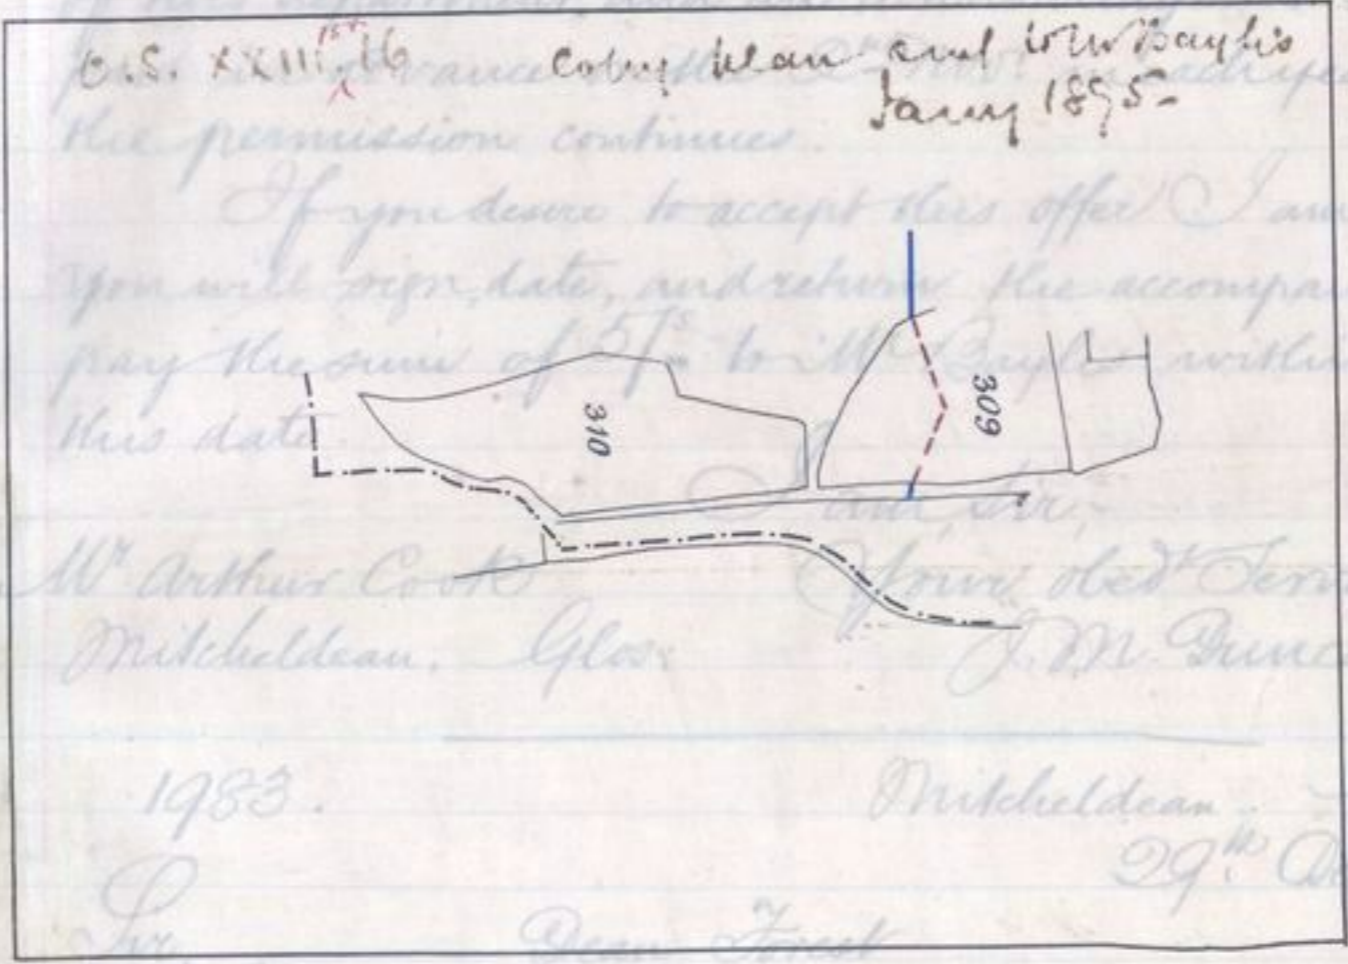 O.S. XXIII 16 Copy plan sent W.W. Baylis
1st
Jany 1895
the permission continues.
If you desire to accept this offer I am
you will sign, date, and return the accompa
pay the sum of 5/s to Mr Baylis within
this date.
310
309
I am, Sir,
Mr Arthur Cook Your obedt Serv
Mitcheldean. Glos: J. M. Dunc
1983. Mitcheldean
29th
Sir,
Dean Forest